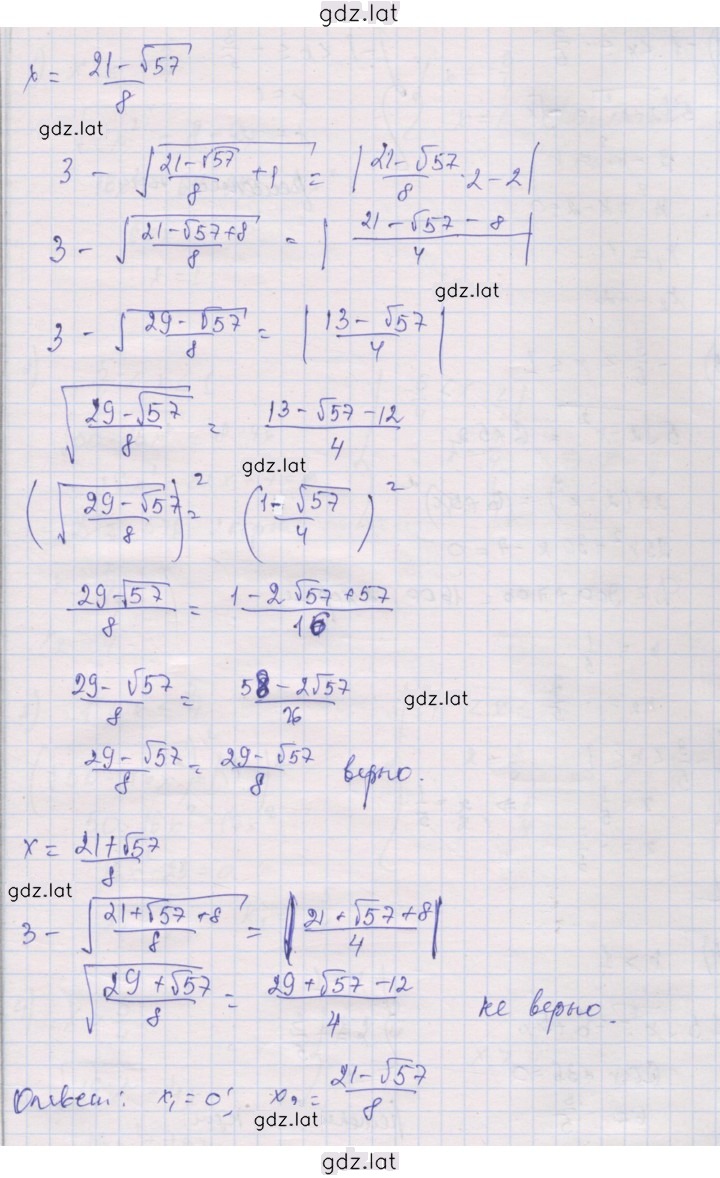 gdz.lat
x = (21-√57)/8
gdz.lat
3 - √((21-√57)/8 + 1) = |(21-√57)/8 · 2 - 2|
3 - √((21-√57+8)/8) = |(21-√57-8)/4|
gdz.lat
3 - √((29-√57)/8) = |(13-√57)/4|
√((29-√57)/8) = (13-√57-12)/4
gdz.lat
(√((29-√57)/8))² = ((1-√57)/4)²
(29-√57)/8 = (1-2√57+57)/16
(29-√57)/8 = (58-2√57)/16
gdz.lat
(29-√57)/8 = (29-√57)/8 верно.
x = (21+√57)/8
gdz.lat
3 - √((21+√57+8)/8) = |(21+√57+8)/4|
√((29+√57)/8) = (29+√57-12)/4 не верно.
Ответ: x₁ = 0; x₂ = (21-√57)/8
gdz.lat
gdz.lat